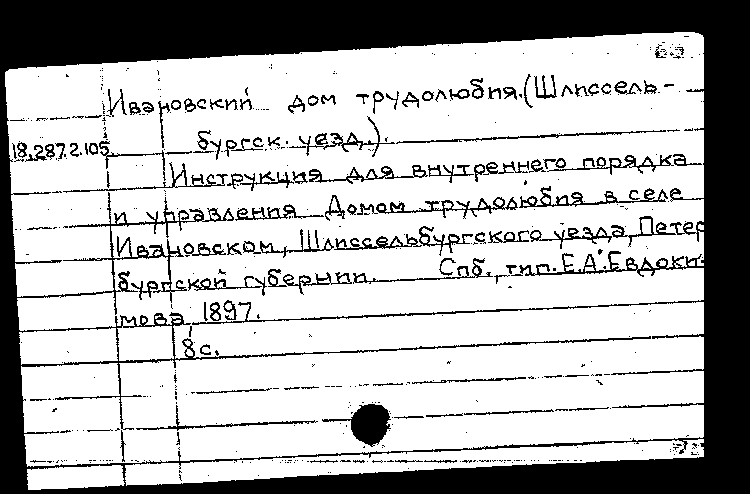 Ивановский дом трудолюбия.(Шлиссель-
18.287.2.105. бургск. уезд.).
Инструкция для внутреннего порядка
и управления Домом трудолюбия в селе
Ивановском, Шлиссельбургского уезда, Петер
бургской губернии. Спб., тип. Е.А.Евдоки-
мова, 1897.
8 с.